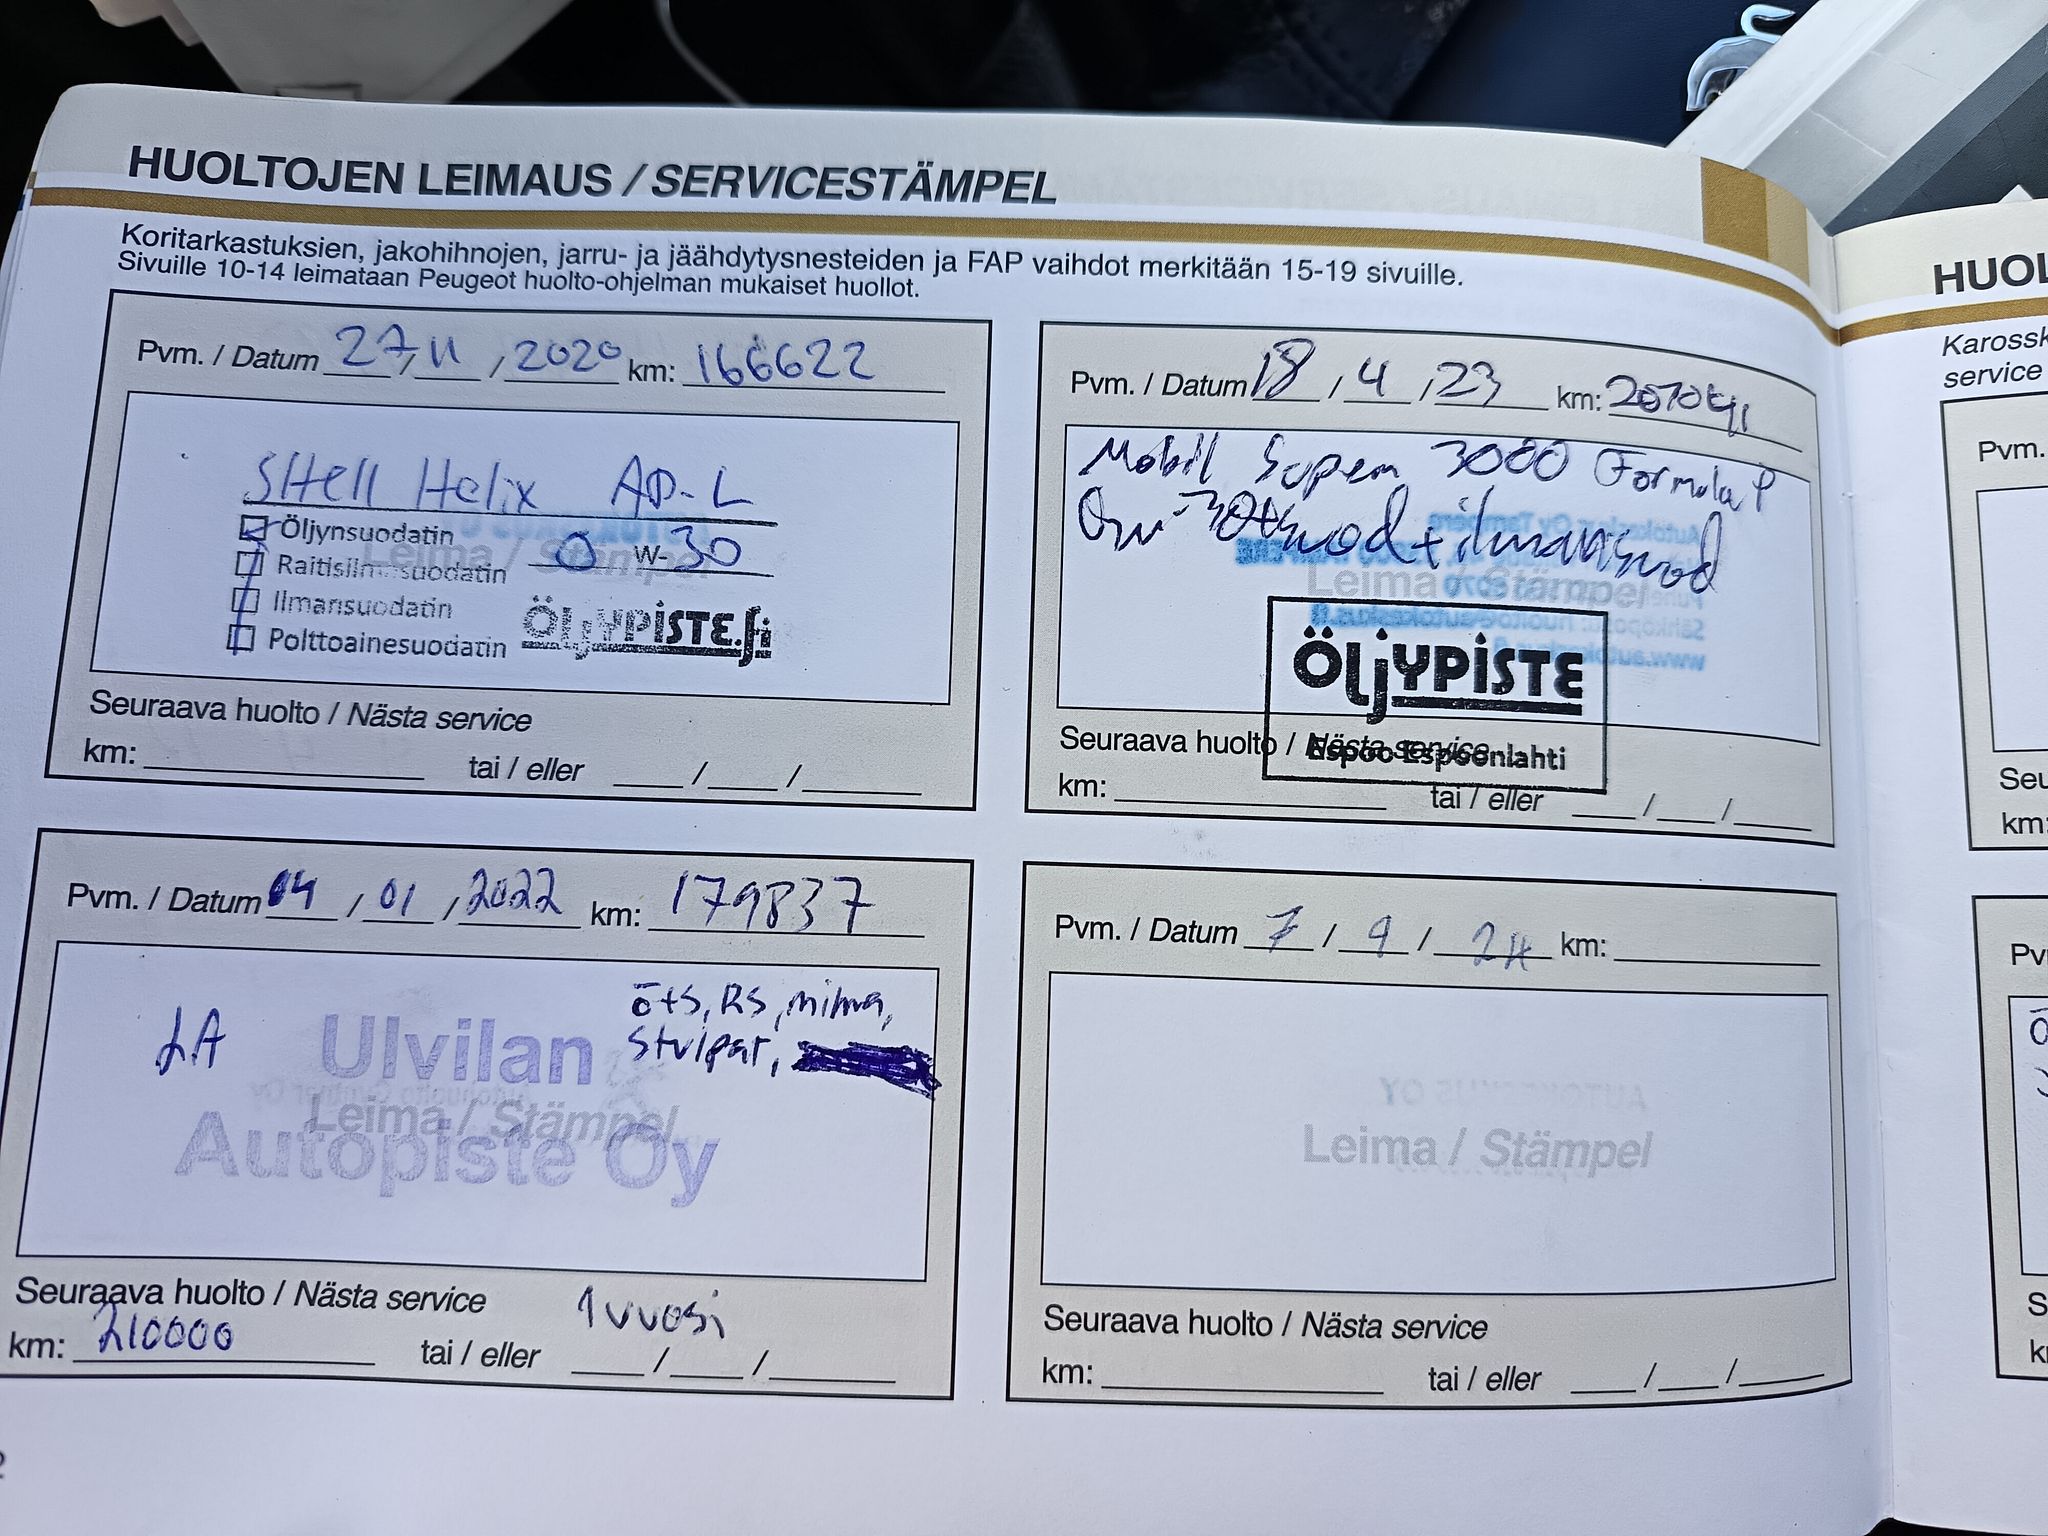 HUOLTOJEN LEIMAUS / SERVICESTÄMPEL
Koritarkastuksien, jakohihnojen, jarru- ja jäähdytysnesteiden ja FAP vaihdot merkitään 15-19 sivuille.
Sivuille 10-14 leimataan Peugeot huolto-ohjelman mukaiset huollot.
Pvm. / Datum 27/11/2020 km: 166622
SHell Helix AP-L
Öljynsuodatin
0 W-30
Raitisilmansuodatin
Leima / Stämpel
Ilmansuodatin
Polttoainesuodatin
ÖLjYPiSTE.fi
Seuraava huolto / Nästa service
km: tai / eller / /
Pvm. / Datum 18/4/23 km:
Mobil Super 3000 Formula P
+ ilmansuod
Leima / Stämpel
ÖLjYPiSTE
Espoo Espoonlahti
Seuraava huolto / Nästa service
km: tai / eller / /
Pvm. / Datum 04/01/2022 km: 179837
öts, RS, nilma,
Ulvilan
Leima / Stämpel
Autopiste Oy
Seuraava huolto / Nästa service 1 vuosi
km: 210000 tai / eller / /
Pvm. / Datum 7/9/24 km:
Leima / Stämpel
Seuraava huolto / Nästa service
km: tai / eller / /
2
HUOL
Karossk
service
Pvm.
Seu
km:
Pv
S
k